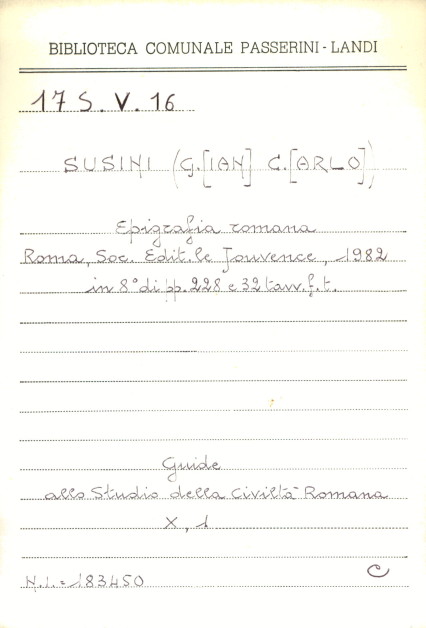 BIBLIOTECA COMUNALE PASSERINI - LANDI
17 S. V. 16
SUSINI (G.[IAN] C.[ARLO])
Epigrafia romana
Roma, Soc. Edit.le Jouvence, 1982
in 8° di pp. 228 e 32 tavv. f. t.
Guide
allo Studio della Civiltà Romana
X, 1
C
N.I. = 183450